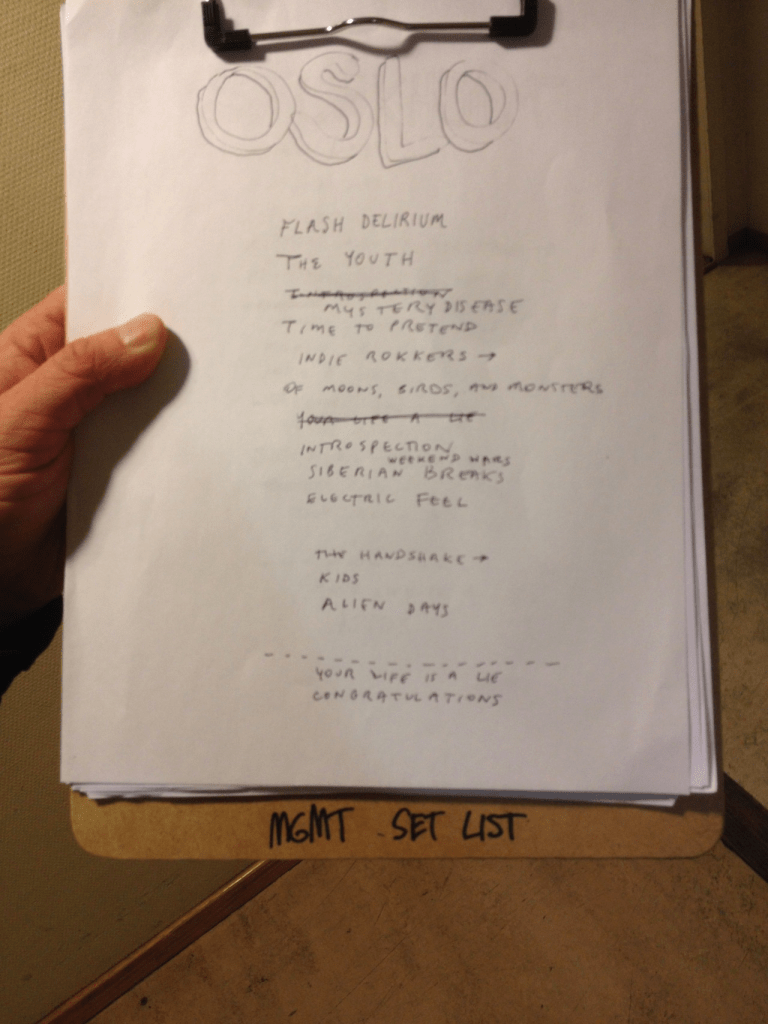 OSLO
FLASH DELIRIUM
THE YOUTH
INTROSPECTION
MYSTERY DISEASE
TIME TO PRETEND
INDIE ROKKERS →
OF MOONS, BIRDS, AND MONSTERS
YOUR LIFE A LIE
INTROSPECTION
WEEKEND WARS
SIBERIAN BREAKS
ELECTRIC FEEL
THE HANDSHAKE →
KIDS
ALIEN DAYS
YOUR LIFE IS A LIE
CONGRATULATIONS
MGMT SET LIST